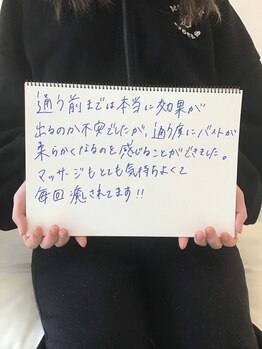 通う前までは本当に効果が
出るのか不安でしたが、通う度にバストが
柔らかくなるのを感じることができました。
マッサージもとても気持ちよくて
毎回癒されてます!!